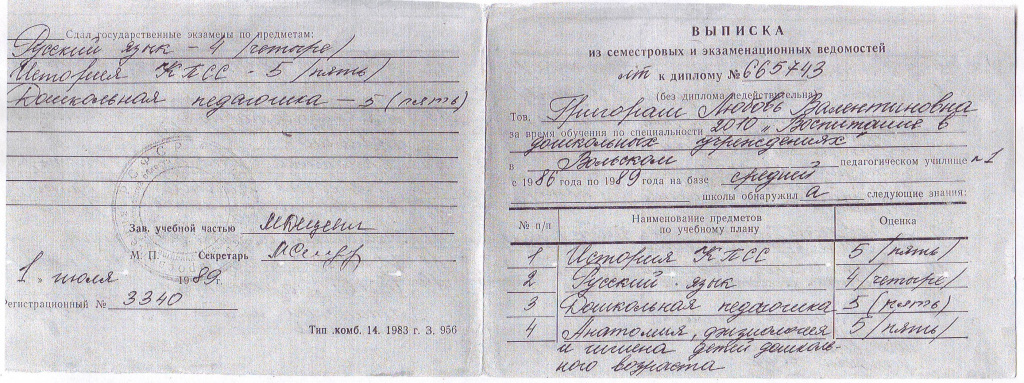 Сдал государственные экзамены по предметам:
Русский язык – 4 /четыре/
История КПСС - 5 /пять/
Дошкольная педагогика – 5 (пять)
Зав. учебной частью
М. П. Секретарь
"1" июля 1989 г.
Регистрационный № 3340
Тип .комб. 14. 1983 г. З. 956
ВЫПИСКА
из семестровых и экзаменационных ведомостей
к диплому № 665743
(без диплома недействительна)
Тов. Григораш Любовь Валентиновна
за время обучения по специальности 2010 „Воспитание в
дошкольных учреждениях"
в Вольском педагогическом училище №1
с 1986 года по 1989 года на базе средней
школы обнаружил а следующие знания:
№ п/п Наименование предметов по учебному плану Оценка
1 История КПСС 5 /пять/
2 Русский язык 4 /четыре/
3 Дошкольная педагогика 5 (пять)
4 Анатомия, физиология 5 /пять/
и гигиена детей дошколь-
ного возраста